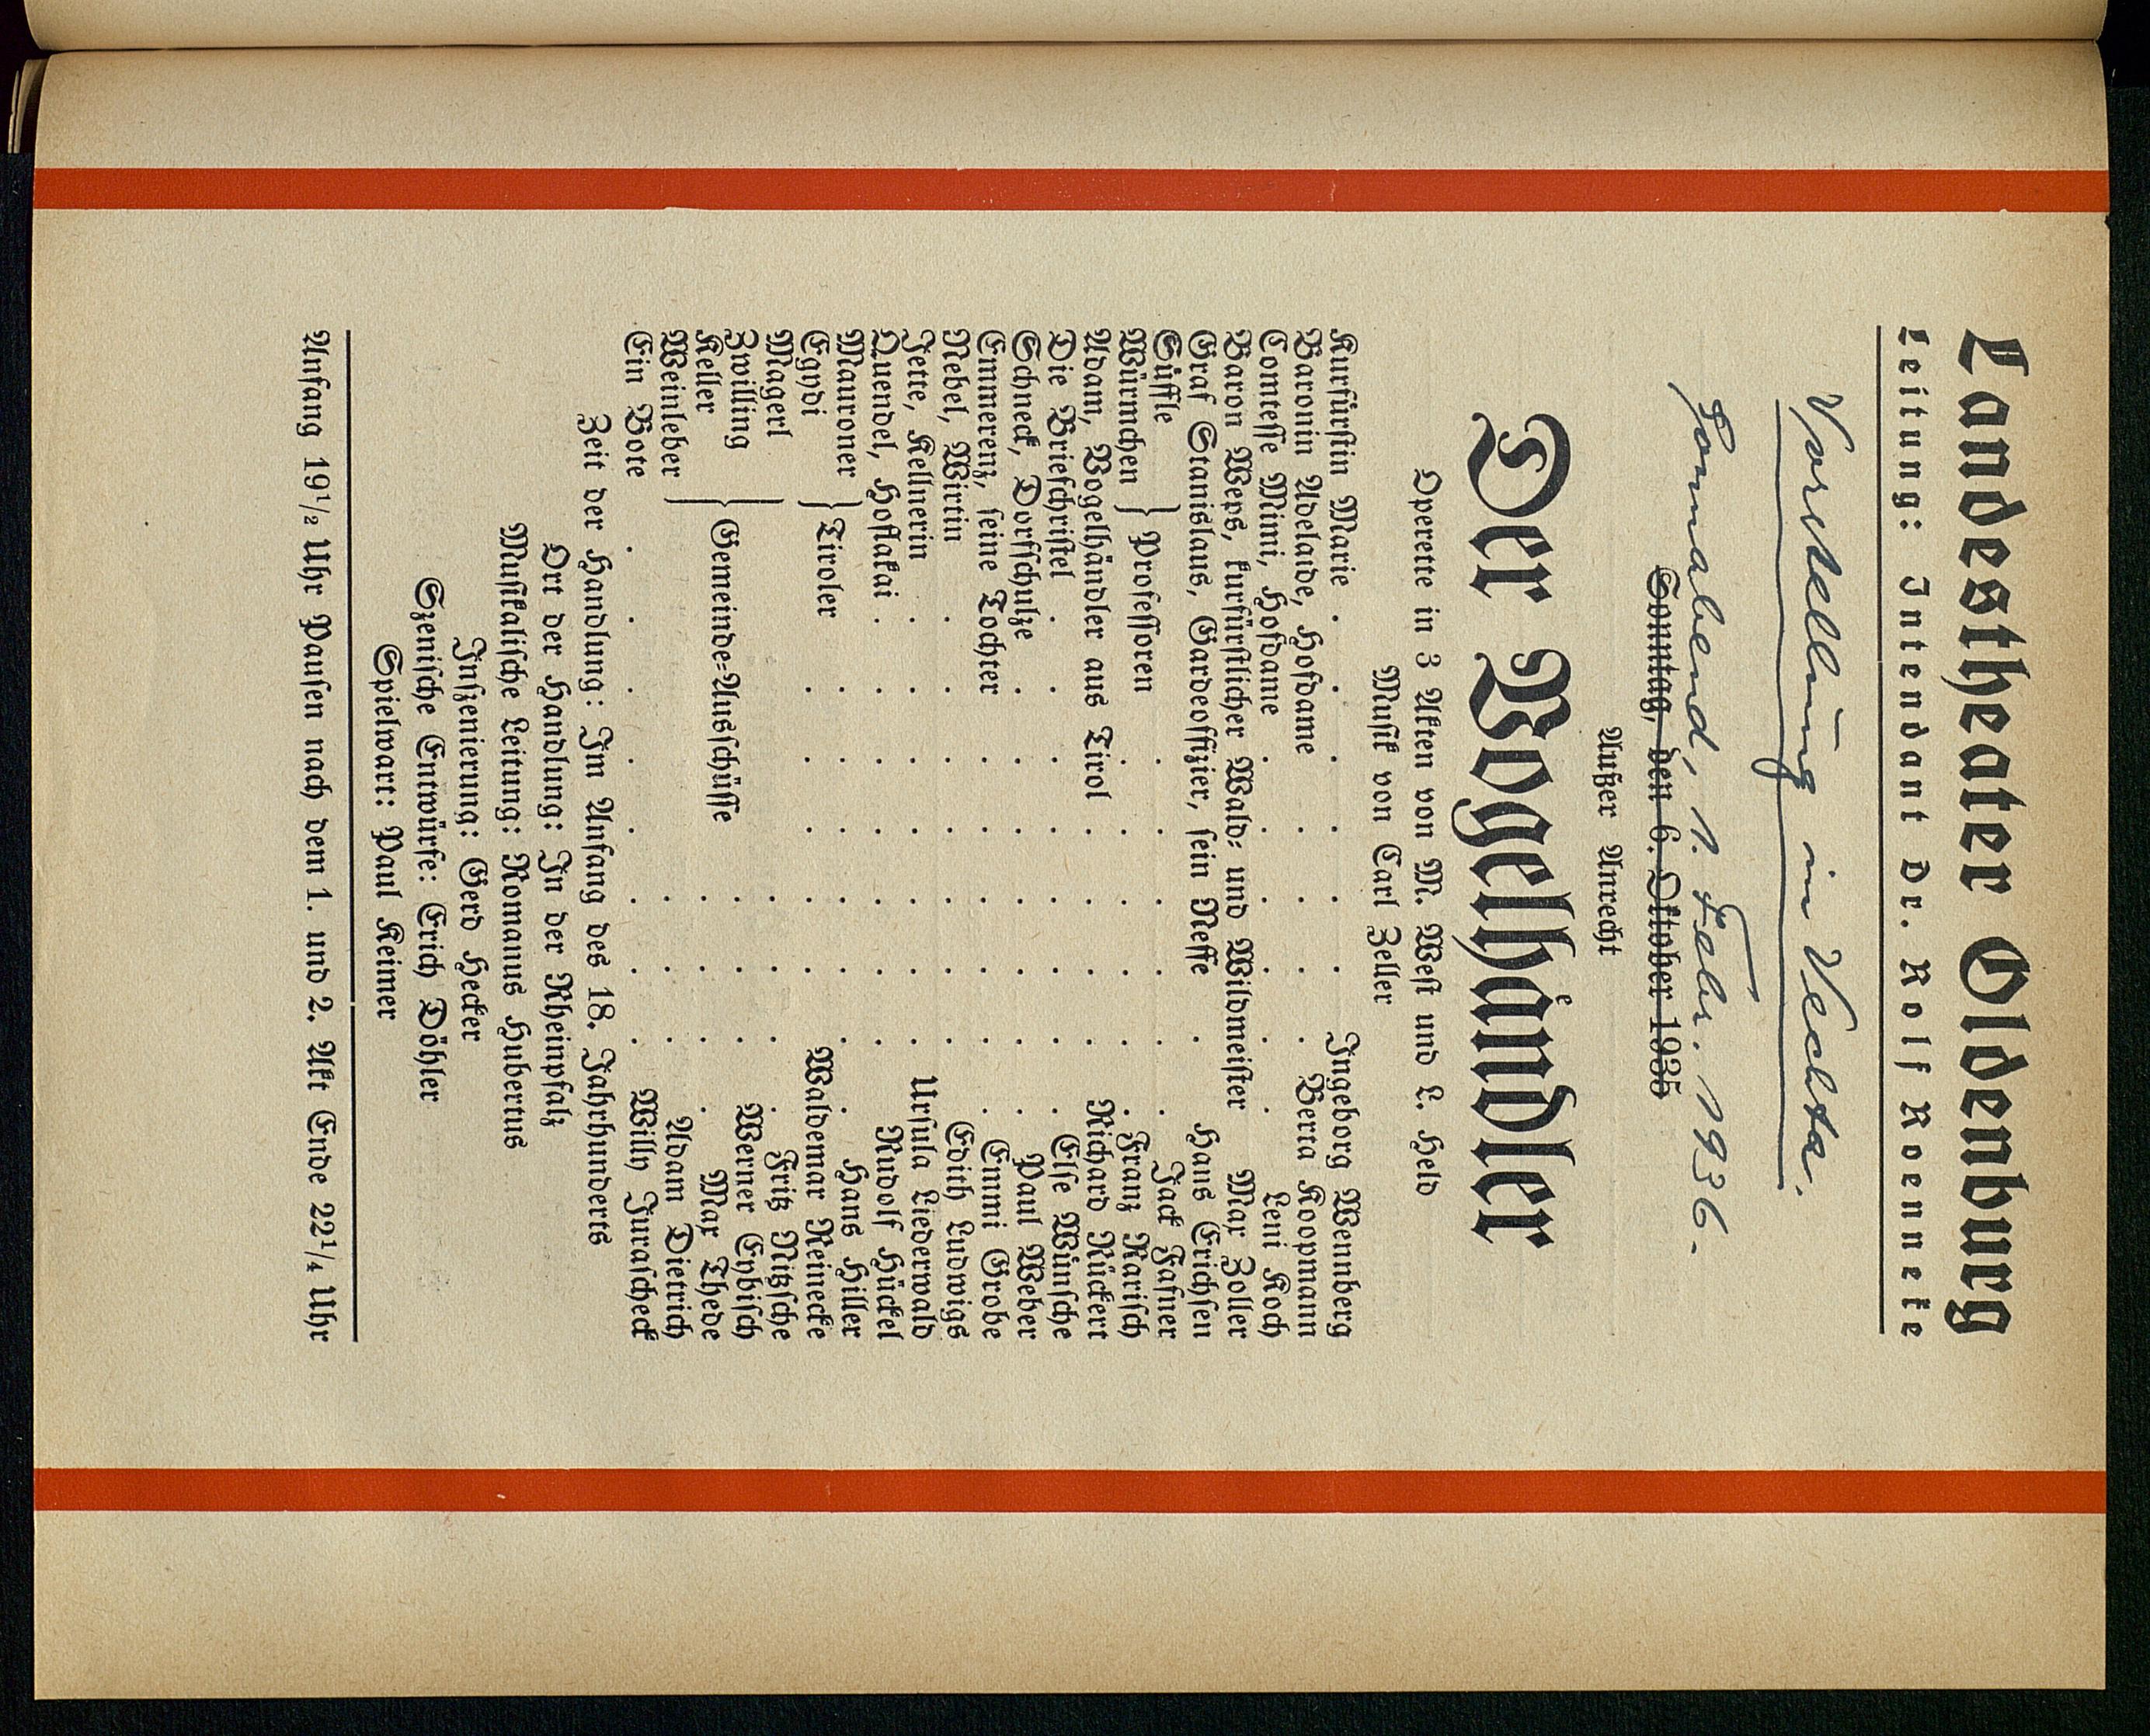 Landestheater Oldenburg
Leitung: Intendant Dr. Rolf Roenneke
Vorstellung in Vechta.
Sonnabend, 1. Febr. 1936.
Sonntag, den 6. Oktober 1935
Außer Anrecht
Der Vogelhändler
Operette in 3 Akten von M. West und L. Held
Musik von Carl Zeller
Kurfürstin Marie . . . . . . Ingeborg Wennberg
Baronin Adelaide, Hofdame . . . . Berta Koopmann
Comtesse Mimi, Hofdame . . . . . . Leni Koch
Baron Weps, kurfürstlicher Wald- und Wildmeister Max Zoller
Graf Stanislaus, Gardeoffizier, sein Neffe . Hans Erichsen
Süffle } Professoren . . . . . Jack Fafner
Würmchen . . . . . . Franz Marisch
Adam, Vogelhändler aus Tirol . . . . Richard Rückert
Die Briefchristel . . . . . . . . Else Wünsche
Schneck, Dorfschulze . . . . . . . Paul Weber
Emmerenz, seine Tochter . . . . . . Emmi Grobe
Nebel, Wirtin . . . . . . . Edith Ludwigs
Jette, Kellnerin . . . . . . . Ursula Liederwald
Quendel, Hoflakai . . . . . . . Rudolf Hückel
Mauroner } Tiroler . . . . . . . Hans Hiller
Egydi . . . . . Waldemar Reinecke
Magerl } Gemeinde-Ausschüsse . . . . Fritz Nitzsche
Zwilling . . . Werner Eybisch
Keller . . . . Max Thede
Weinleber . . . Adam Dietrich
Ein Bote . . . . . . . . Willy Jurascheck
Zeit der Handlung: Im Anfang des 18. Jahrhunderts
Ort der Handlung: In der Rheinpfalz
Musikalische Leitung: Romanus Hubertus
Inszenierung: Gerd Hecker
Szenische Entwürfe: Erich Döhler
Spielwart: Paul Keimer
Anfang 19½ Uhr Pausen nach dem 1. und 2. Akt Ende 22¼ Uhr